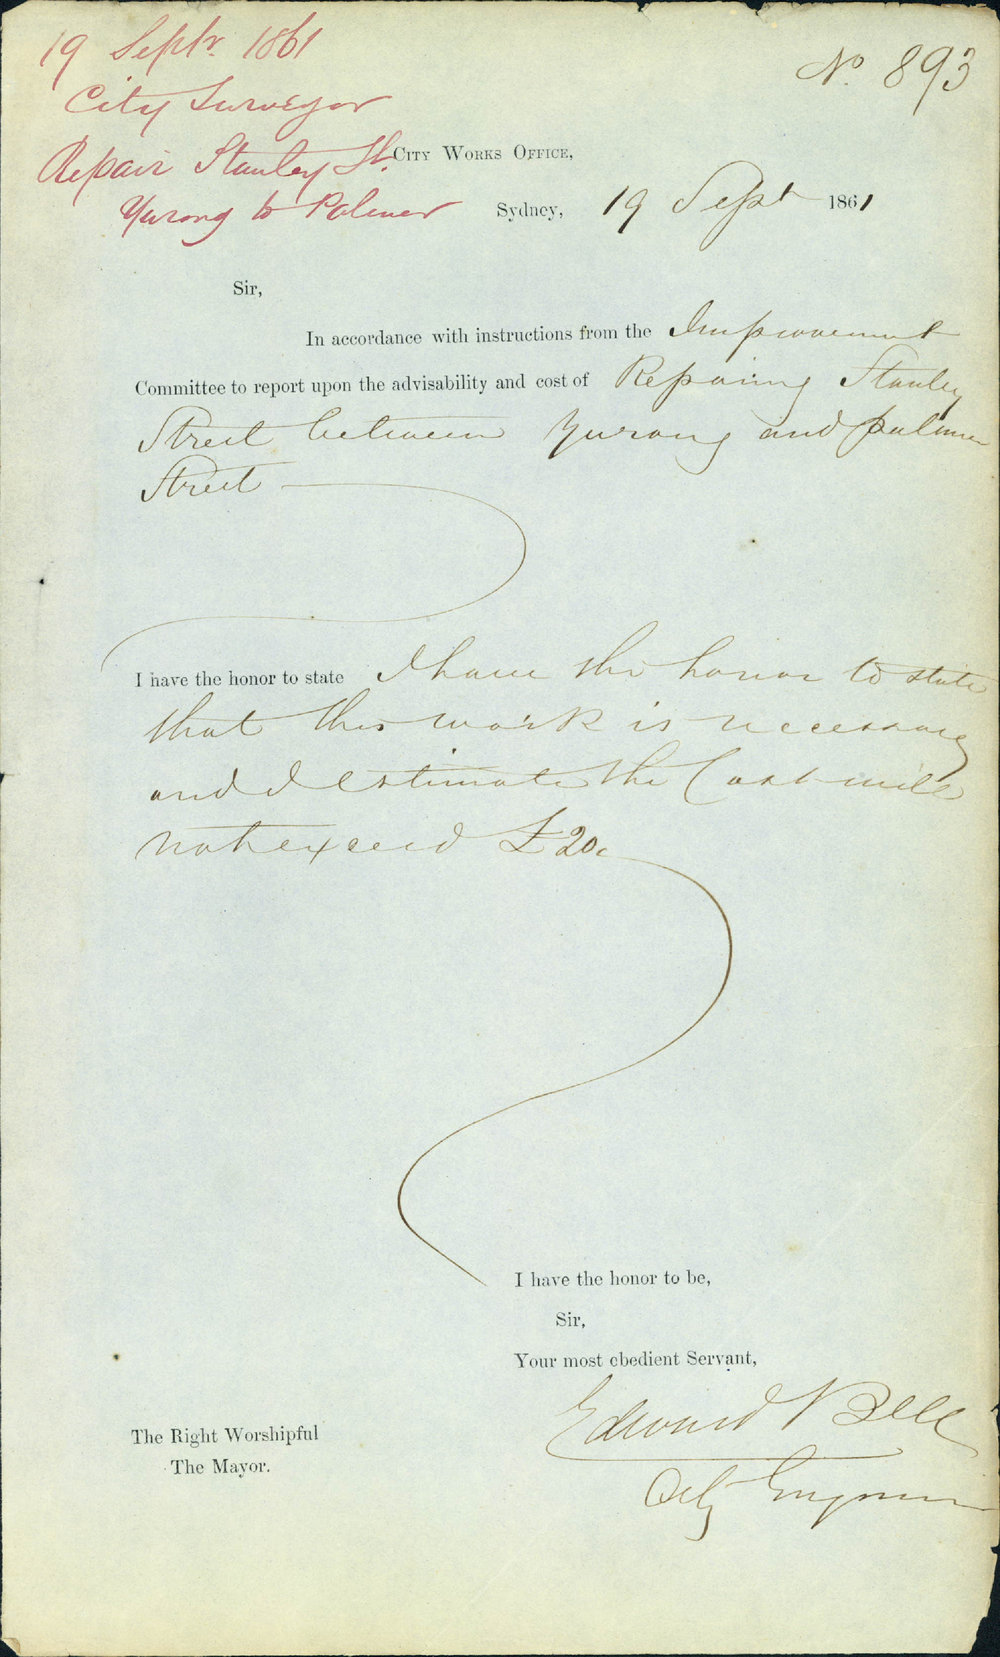 19 Septr. 1861
City Surveyor
Repair Stanley St.
Yurong to Palmer
No 893
City Works Office,
Sydney, 19 Sept 1861
Sir,
In accordance with instructions from the Improvement
Committee to report upon the advisability and cost of Repairing Stanley
Street between Yurong and palmer
Street
I have the honor to state I have the honor to state
that this work is necessary
and I estimate the Cost will
not exceed £20
I have the honor to be,
Sir,
Your most obedient Servant,
Edward Bell
City Engineer
The Right Worshipful
The Mayor.